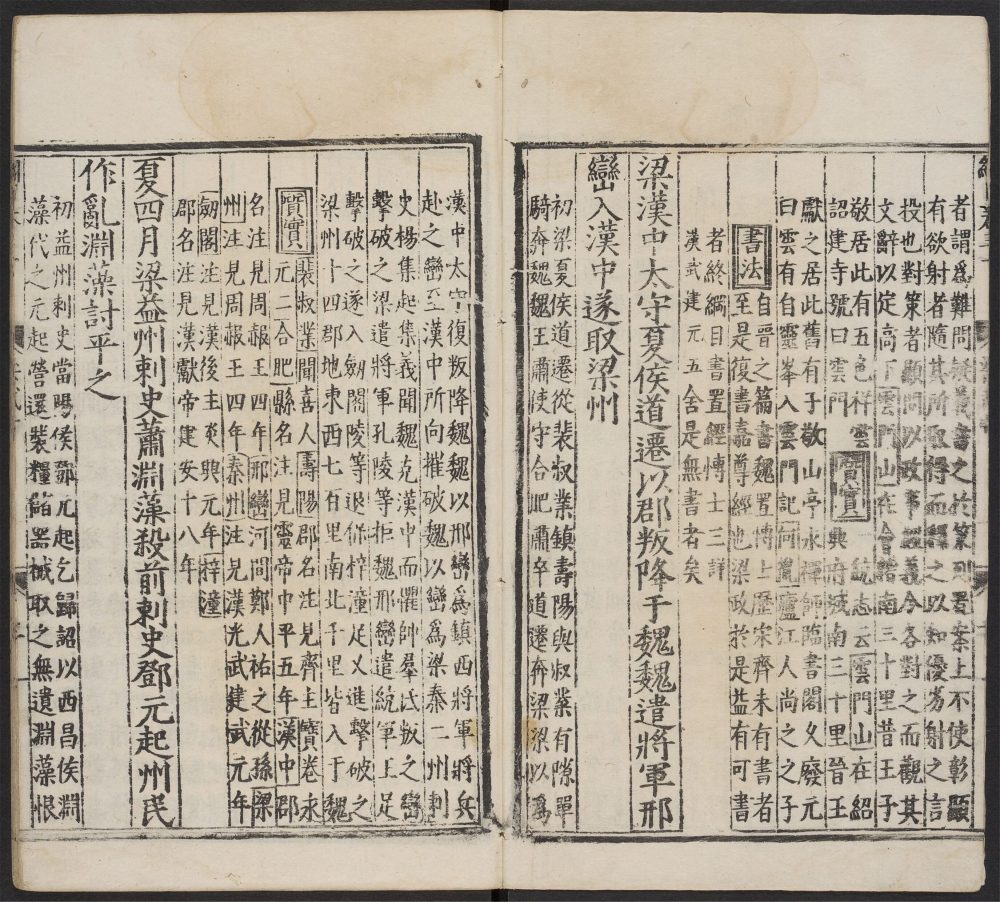 者謂為難問疑義書之於策則置案上不使彰顯
有欲射者隨其所取得而釋之以知優劣射之言
投也對策者顯問以政事經義令各對之而觀其
文辭以定高下雲門山在會稽南三十里昔王子
敬居此有五色祥雲質實一統志云雲門山在紹
興府城南三十里晉王
獻之居此舊有子敬山亭永禪師臨書閣久廢元
詔建寺號曰雲門
曰雲有自靈峯入雲門記何胤廬江人尚之之子
書法自晉之篇書魏置博士歷宋齊未有書者
至是復書嘉尊經也梁政於是益有可書
者終綱目書置經博士三詳
漢武建元五舍是無書者矣
梁漢中太守夏侯道遷以郡叛降于魏魏遣將軍邢
巒入漢中遂取梁州
初梁夏侯道遷從裴叔業鎮壽陽與叔業有隙單
騎奔魏魏王肅使守合肥肅卒道遷奔梁梁以為
漢中太守復叛降魏魏以邢巒為鎮西將軍將兵
赴之巒至漢中所向摧破魏以巒為梁秦二州刺
史楊集起集義聞魏克漢中而懼帥羣氐叛之巒
擊破之梁遣將軍孔陵等拒魏邢巒遣統軍王足
擊破之遂入劒閣陵等退保梓潼足又進擊破之
梁州十四郡地東西七百里南北千里皆入于魏
質實裴叔業聞喜人壽陽郡名注見齊主寶卷永
元二合肥縣名注見靈帝中平五年漢中郡
名注見周赧王四年邢巒河間鄭人祐之從孫梁
州注見周赧王四年秦州注見漢光武建武元年
劒閣注見漢後主炎興元年梓潼
郡名注見漢獻帝建安十八年
夏四月梁益州刺史蕭淵藻殺前刺史鄧元起州民
作亂淵藻討平之
初益州刺史當陽侯鄧元起乞歸詔以西昌侯淵
藻代之元起營還裝糧儲器械取之無遺淵藻恨